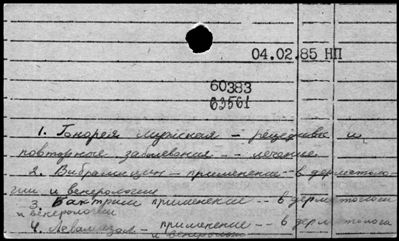 04.02.85 НП
60383
03561
1. Гонорея мужская – рецедивы и
повторные заболевания – лечение
2. Вибрамицин – применение – в дерматоло-
гии и венерологии
3. Бактрим применение – в дерматологи
и венерологии
4. Левамизол – применение – в дерматолога
и венерологии